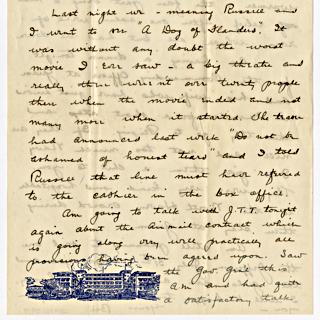 Last night we - meaning Russell and
I went to see "A Dog of Flanders". It
was without any doubt the worst
movie I ever saw - a big theatre and
really there weren't over twenty people
there when the movie ended and not
many more when it started. The
had announced last week "Do not be
ashamed of honest tears" and I told
Russell that line must have referred
to the cashier in the box office.
Am going to talk with J.T.T. tonight
again about the Airmail contract which
is going along very well practically all
provisions having been agreed upon. Saw
the Gov. Gen'l this
AM and had quite
a satisfactory talk